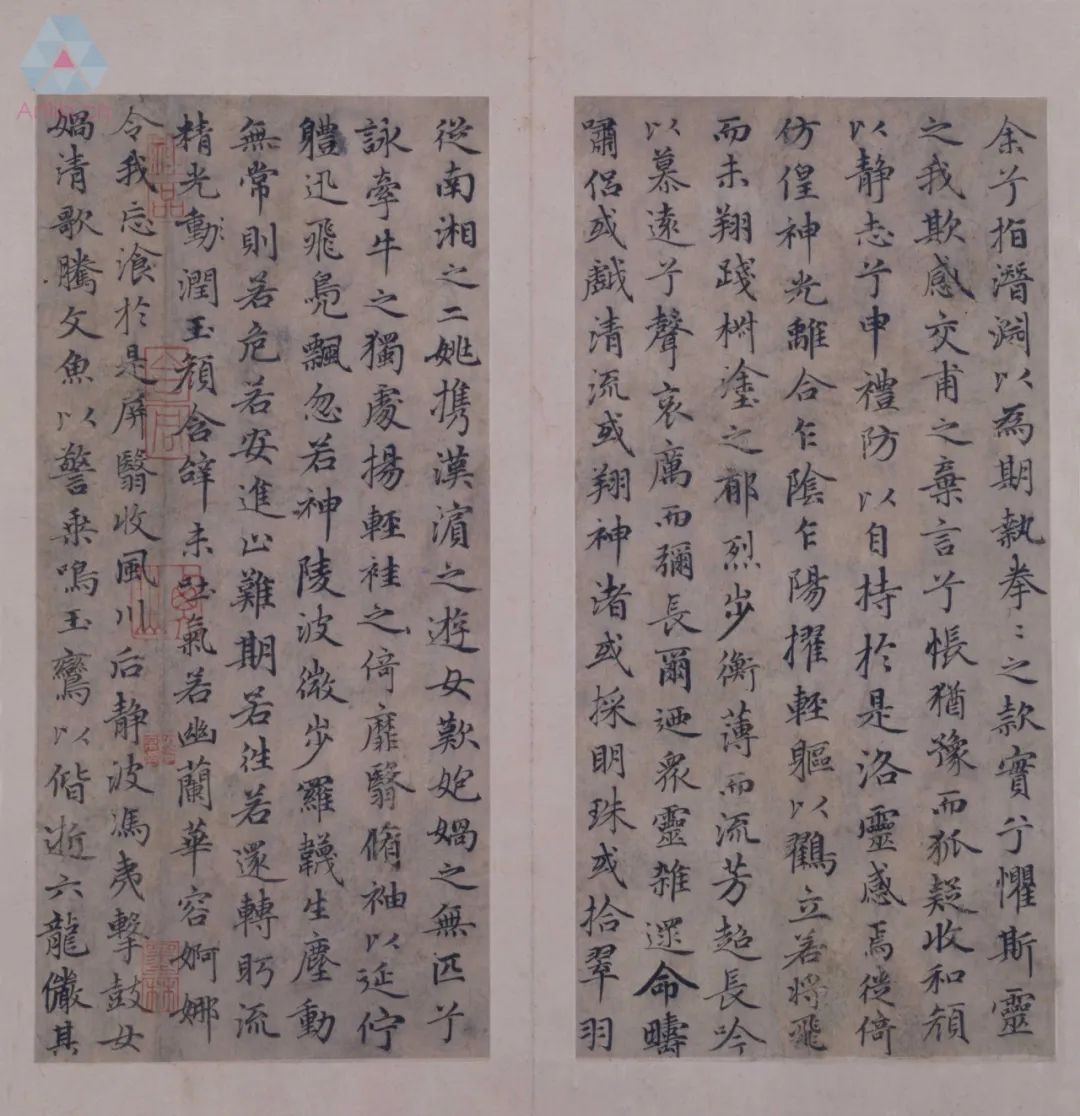 余兮指潛淵以為期執拳〻之款實兮懼斯靈
之我欺感交甫之棄言兮悵猶豫而狐疑收和顏
以静志兮申禮防以自持於是洛靈感焉徙倚
仿偟神光離合乍陰乍陽擢輕軀以鸖立若將飛
而未翔踐椒塗之郁烈步衡薄而流芳超長吟
以慕遠兮聲哀厲而彌長爾迺衆靈雜遝命疇
嘯侶或戲清流或翔神渚或採明珠或拾翠羽
從南湘之二姚攜漢濱之遊女歎匏媧之無匹兮
詠牽牛之獨處揚輕袿之倚靡翳脩袖以延佇
軆迅飛鳧飄忽若神陵波微步羅韈生塵動
無常則若危若安進止難期若往若還轉眄流
精光動潤玉顏含辭未吐氣若幽蘭華容婀娜
令我忘飡於是屏翳收風川后静波馮夷擊鼓女
媧清歌騰文魚以警乘鳴玉鸞以偕逝六龍儼其